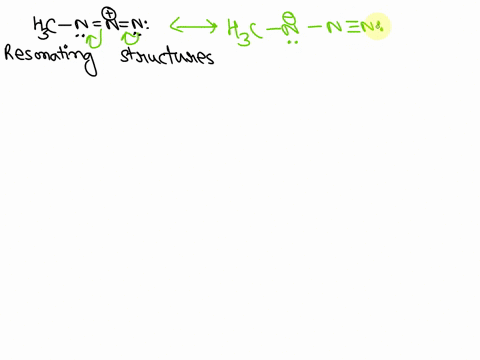 H₃C–N̈=N⊕=N̈: ⟷ H₃C–N̈⊖–N≡N:
Resonating structures